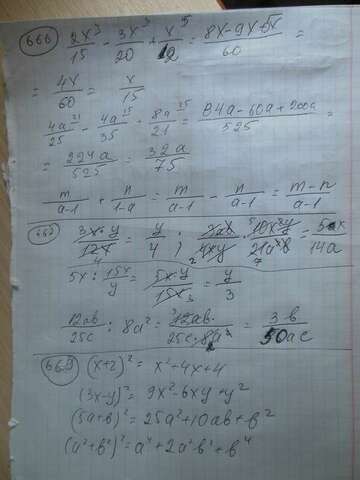 666 2x³/15 - 3x³/20 + x⁵/12 = 8x-9x+5x/60 =
= 4x/60 = x/15
4a²¹/25 - 4a¹⁵/35 + 8a²⁵/21 = 84a-60a+200a/525 =
= 224a/525 = 32a
/75
m/a-1 + n/1-a = m/a-1 - n/a-1 = m-n/a-1
3x·y/12x = y/4 ; 2ab/4xy · 10x²y/21a²b = 5x/14a
5x : 15x/y = 5x·y/15x = y/3
12ab/25c : 8a² = 12ab/25c·8a² = 3b/50ac
(x+2)² = x²+4x+4
(3x-y)² = 9x²-6xy+y²
(5a+b)² = 25a²+10ab+b²
(a²+b²)² = a⁴+2a²b²+b⁴